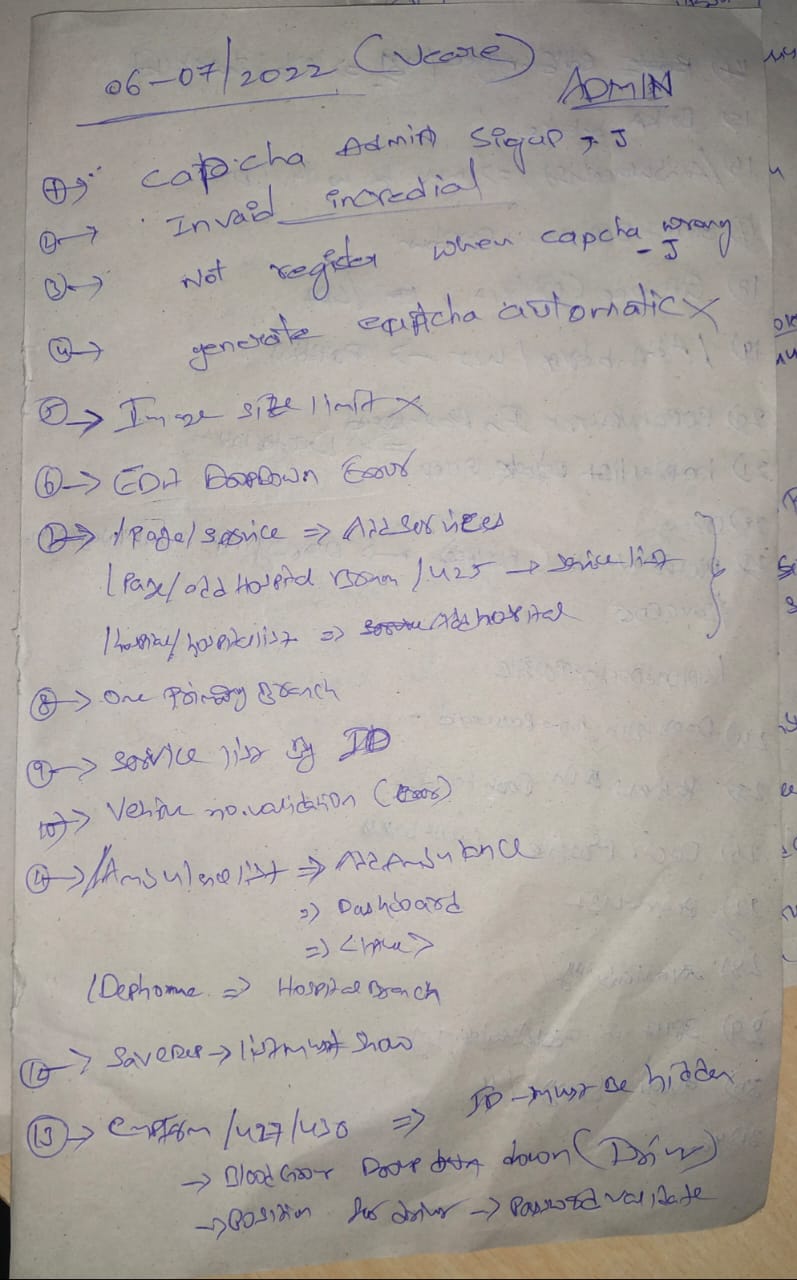 06-07/2022 (Vcare)
ADMIN
1 → capcha Admin Sigup → J
2 → Invaid incredial
3 → Not register when capcha wrong - J
4 → generate captcha automatic X
5 → Image size limit X
6 → Edit DropDown Error
7 → /Page/service => Add Services
/Page/add Hospital /425 → service list
/hospital list => Add hospital
8 → One Primary Branch
9 → service list By ID
10 → Vehicle no. validation (Error)
/Ambulance list => Add Ambulance
=> Dashboard
=>
=> Hospital Branch
→ list must show
13 → /427/430 => ID - must be hidden
→ Blood Group down (Driver)
→ Position for driver → Password validate